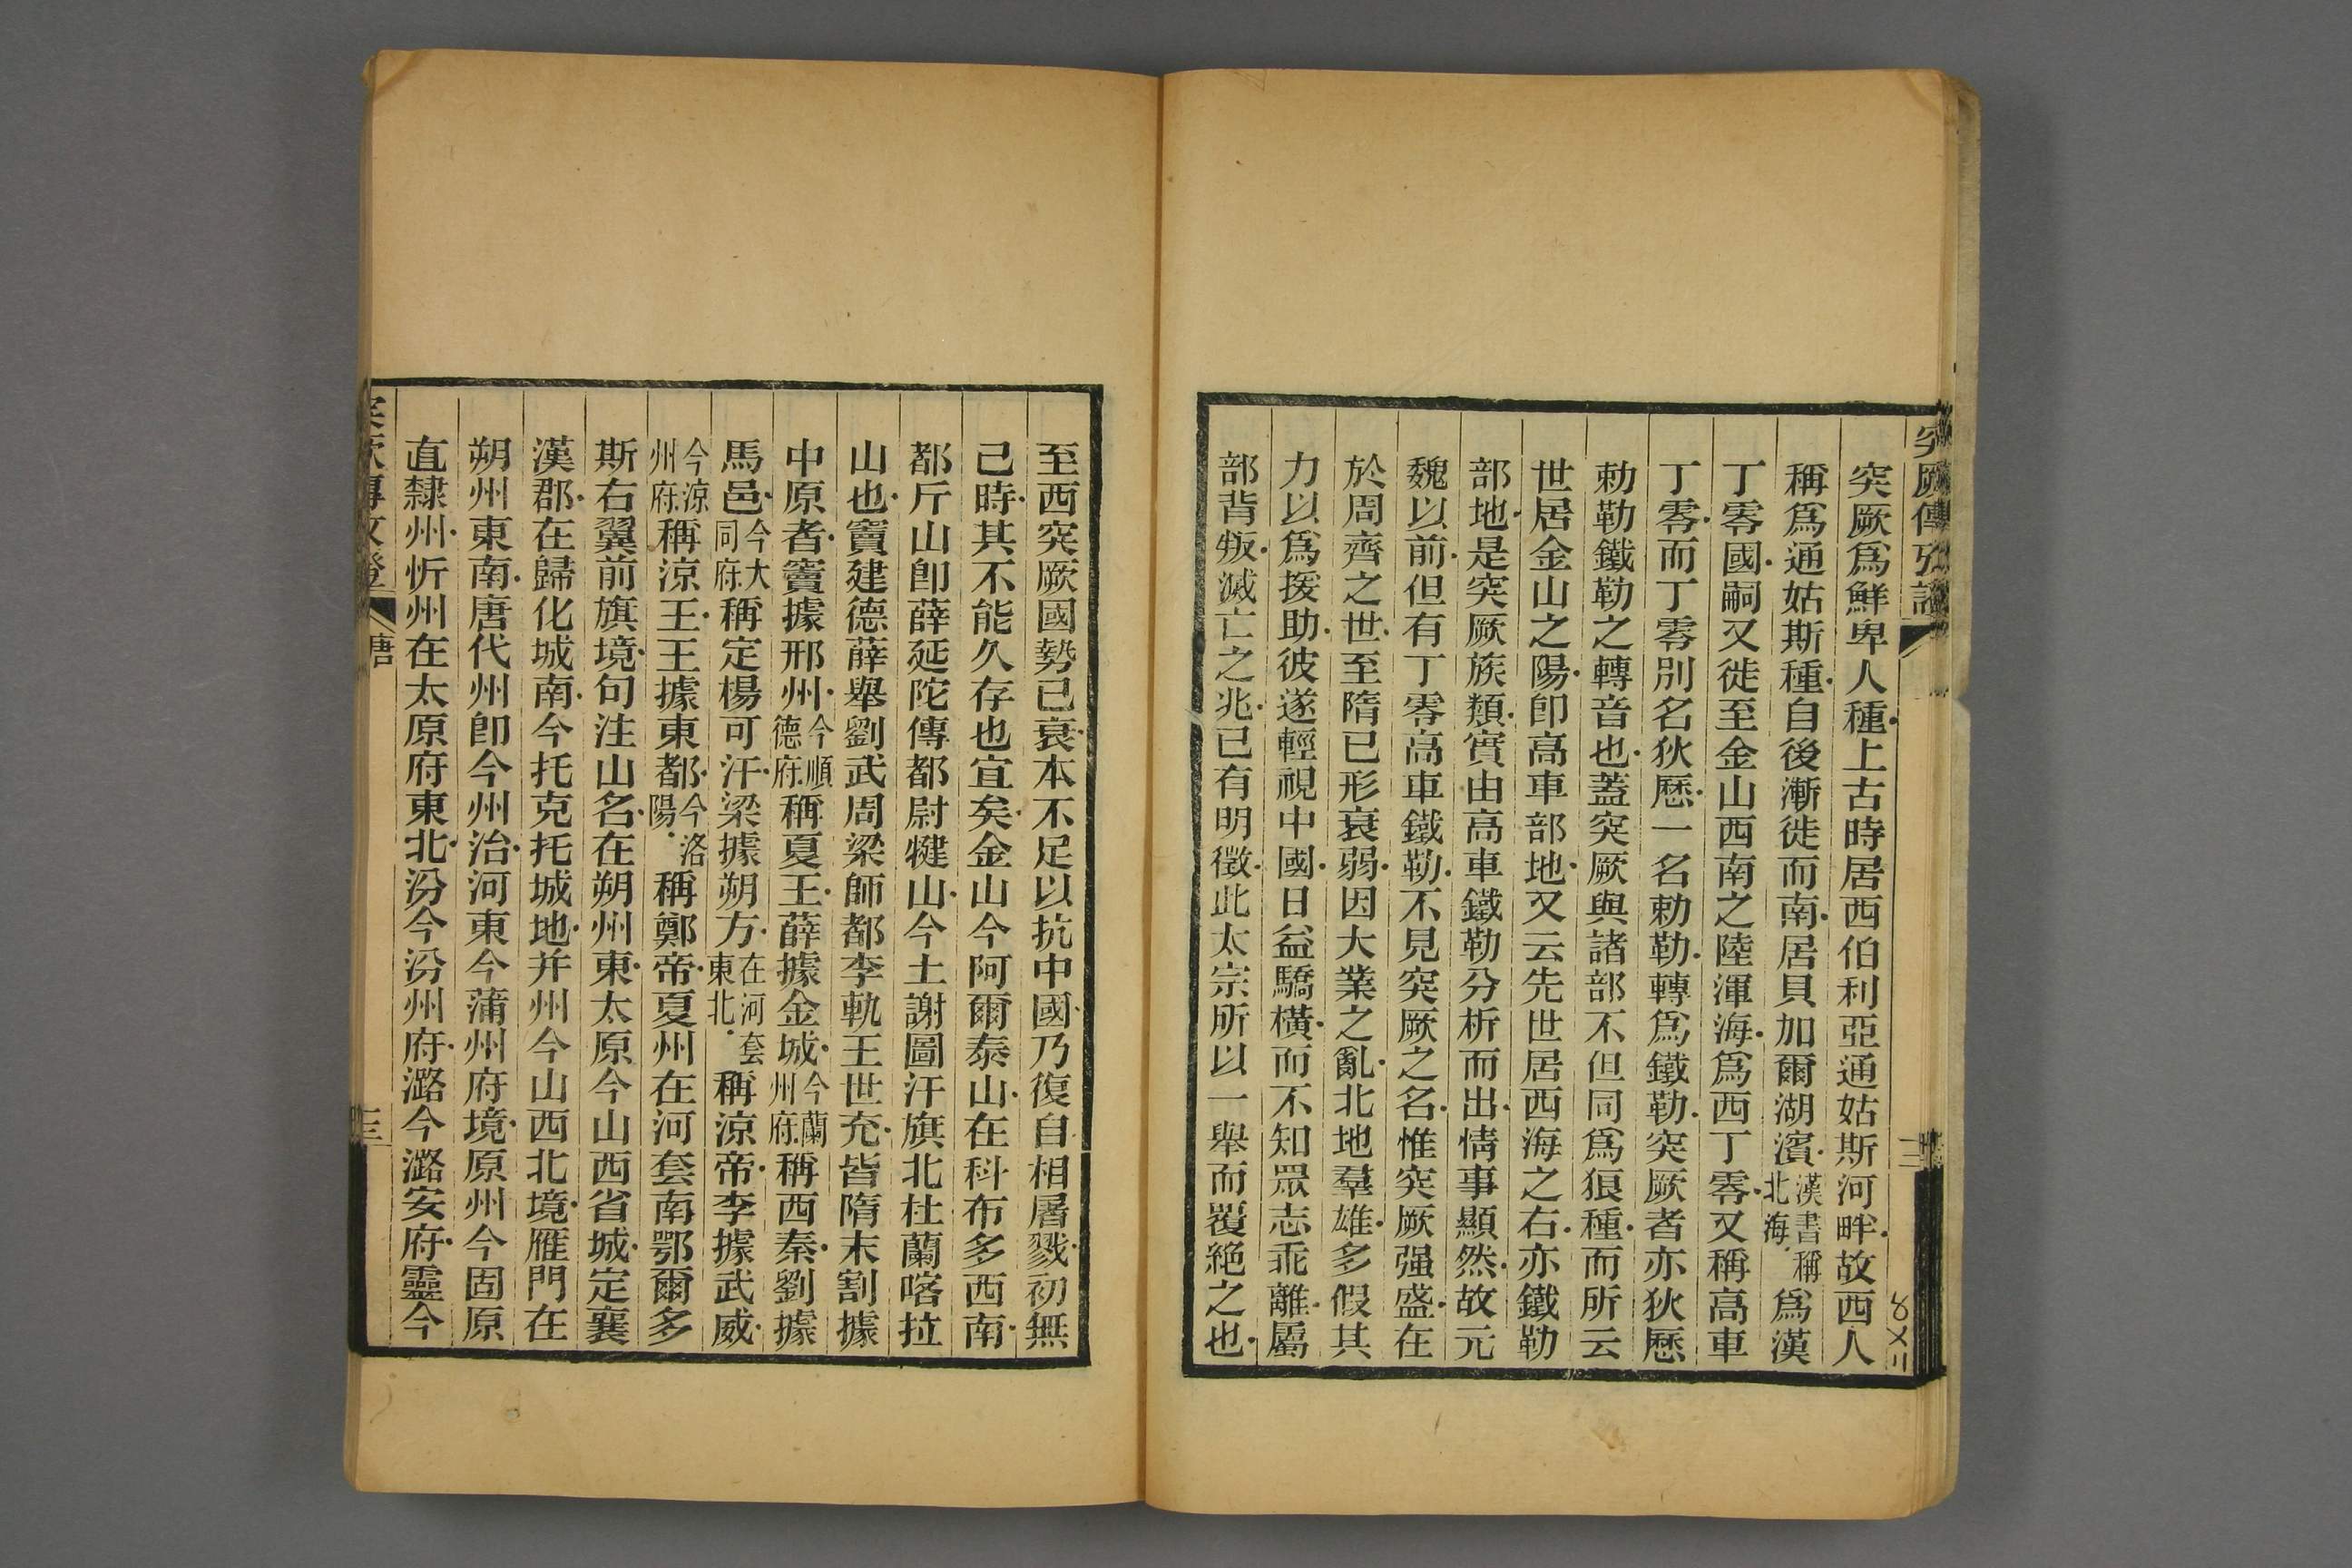 突厥傳攷證
二
突厥爲鮮卑人種上古時居西伯利亞通姑斯河畔故西人
稱爲通姑斯種自後漸徙而南居貝加爾湖濱漢書稱北海爲漢
丁零國嗣又徙至金山西南之陸渾海爲西丁零又稱高車
丁零而丁零別名狄歷一名勅勒轉爲鐵勒突厥者亦狄歷
勅勒鐵勒之轉音也蓋突厥與諸部不但同爲狼種而所云
世居金山之陽卽高車部地又云先世居西海之右亦鐵勒
部地是突厥族類實由高車鐵勒分析而出情事顯然故元
魏以前但有丁零高車鐵勒不見突厥之名惟突厥强盛在
於周齊之世至隋已形衰弱因大業之亂北地羣雄多假其
力以爲援助彼遂輕視中國日益驕橫而不知眾志乖離屬
部背叛滅亡之兆已有明徵此太宗所以一舉而覆絕之也
至西突厥國勢已衰本不足以抗中國乃復自相屠戮初無
己時其不能久存也宜矣金山今阿爾泰山在科布多西南
都斤山卽薛延陀傳都尉犍山今土謝圖汗旗北杜蘭喀拉
山也竇建德薛舉劉武周梁師都李軌王世充皆隋末割據
中原者竇據邢州今順德府稱夏王薛據金城今蘭州府稱西秦劉據
馬邑今大同府稱定楊可汗梁據朔方在河套東北稱涼帝李據武威
今涼州府稱涼王王據東都今洛陽稱鄭帝夏州在河套南鄂爾多
斯右翼前旗境句注山名在朔州東太原今山西省城定襄
漢郡在歸化城南今托克托城地并州今山西北境雁門在
朔州東南唐代州卽今州治河東今蒲州府境原州今固原
直隸州忻州在太原府東北汾今汾州府潞今潞安府靈今
唐
三